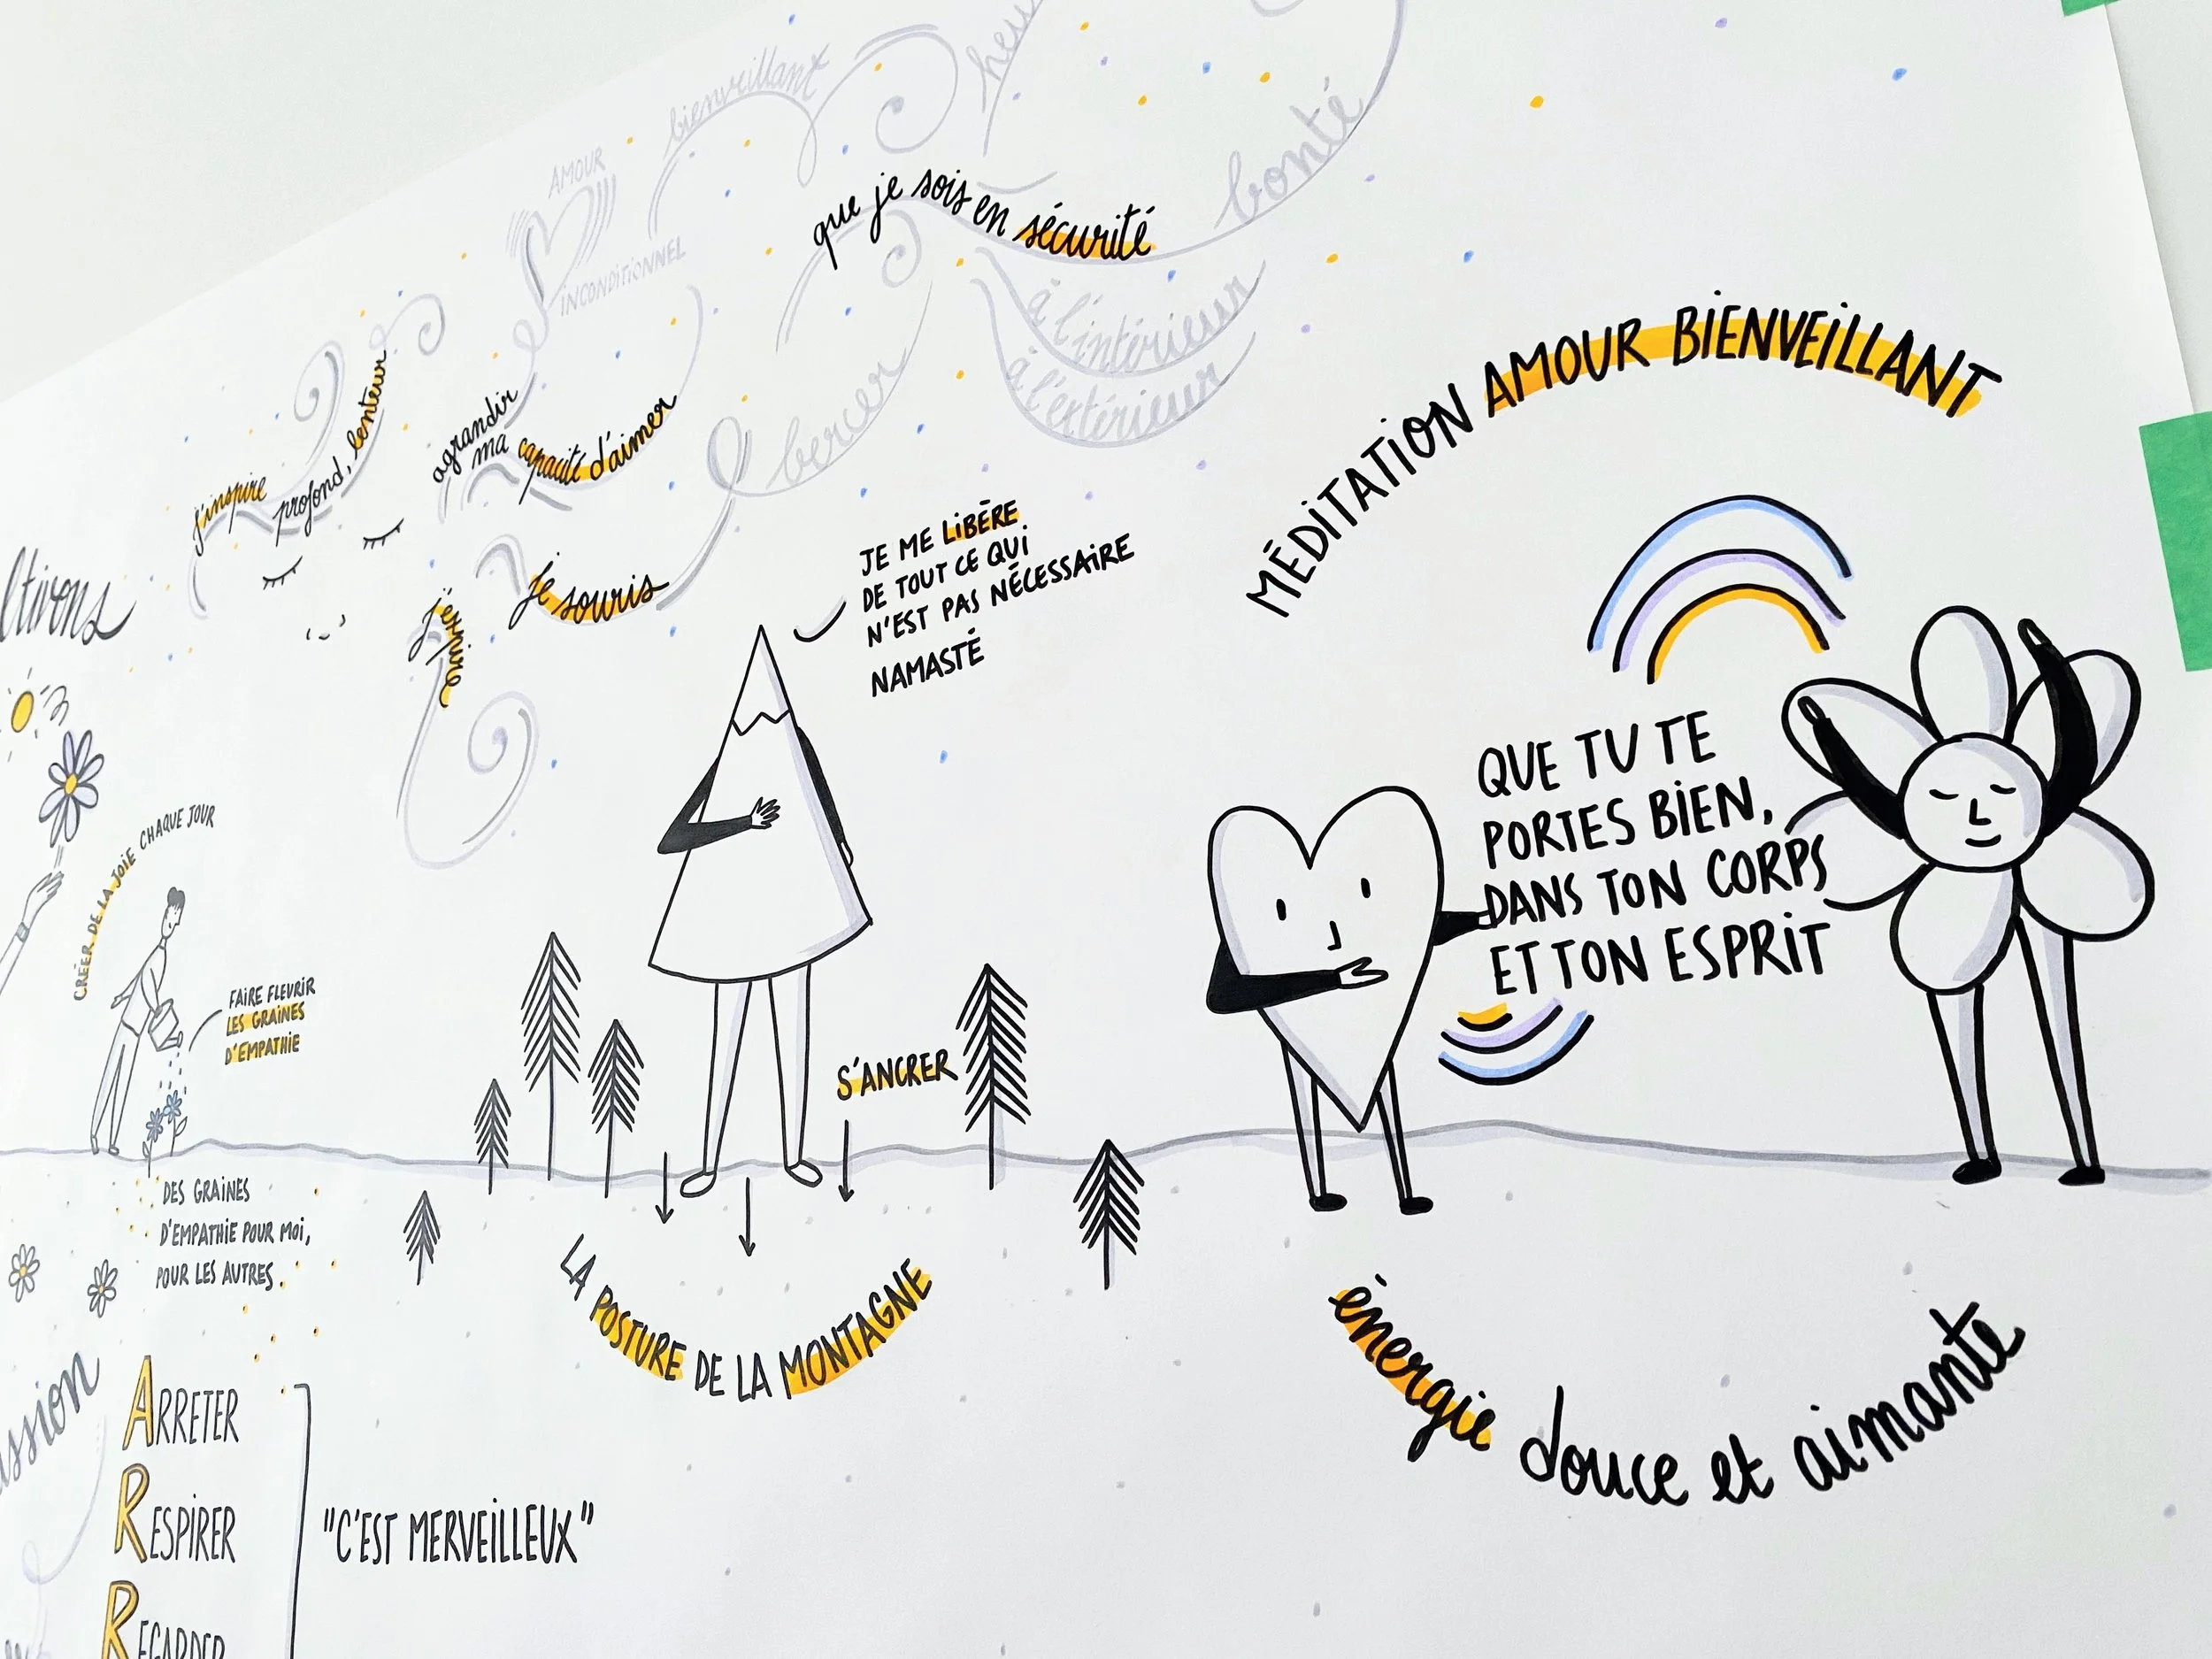 bienveillant
AMOUR
INCONDITIONNEL
que je sois en sécurité
bonté
à l'intérieur
à l'extérieur
bercer
j'inspire
profond, lenteur
agrandir
ma capacité d'aimer
j'expire
je souris
JE ME LIBÈRE
DE TOUT CE QUI
N'EST PAS NÉCESSAIRE
NAMASTÉ
MÉDITATION AMOUR BIENVEILLANT
QUE TU TE
PORTES BIEN,
DANS TON CORPS
ET TON ESPRIT
CRÉER DE LA JOIE CHAQUE JOUR
FAIRE FLEURIR
LES GRAINES
D'EMPATHIE
S'ANCRER
DES GRAINES
D'EMPATHIE POUR MOI,
POUR LES AUTRES.
LA POSTURE DE LA MONTAGNE
énergie douce et aimante
ARRETER
RESPIRER
REGARDER
"C'EST MERVEILLEUX"